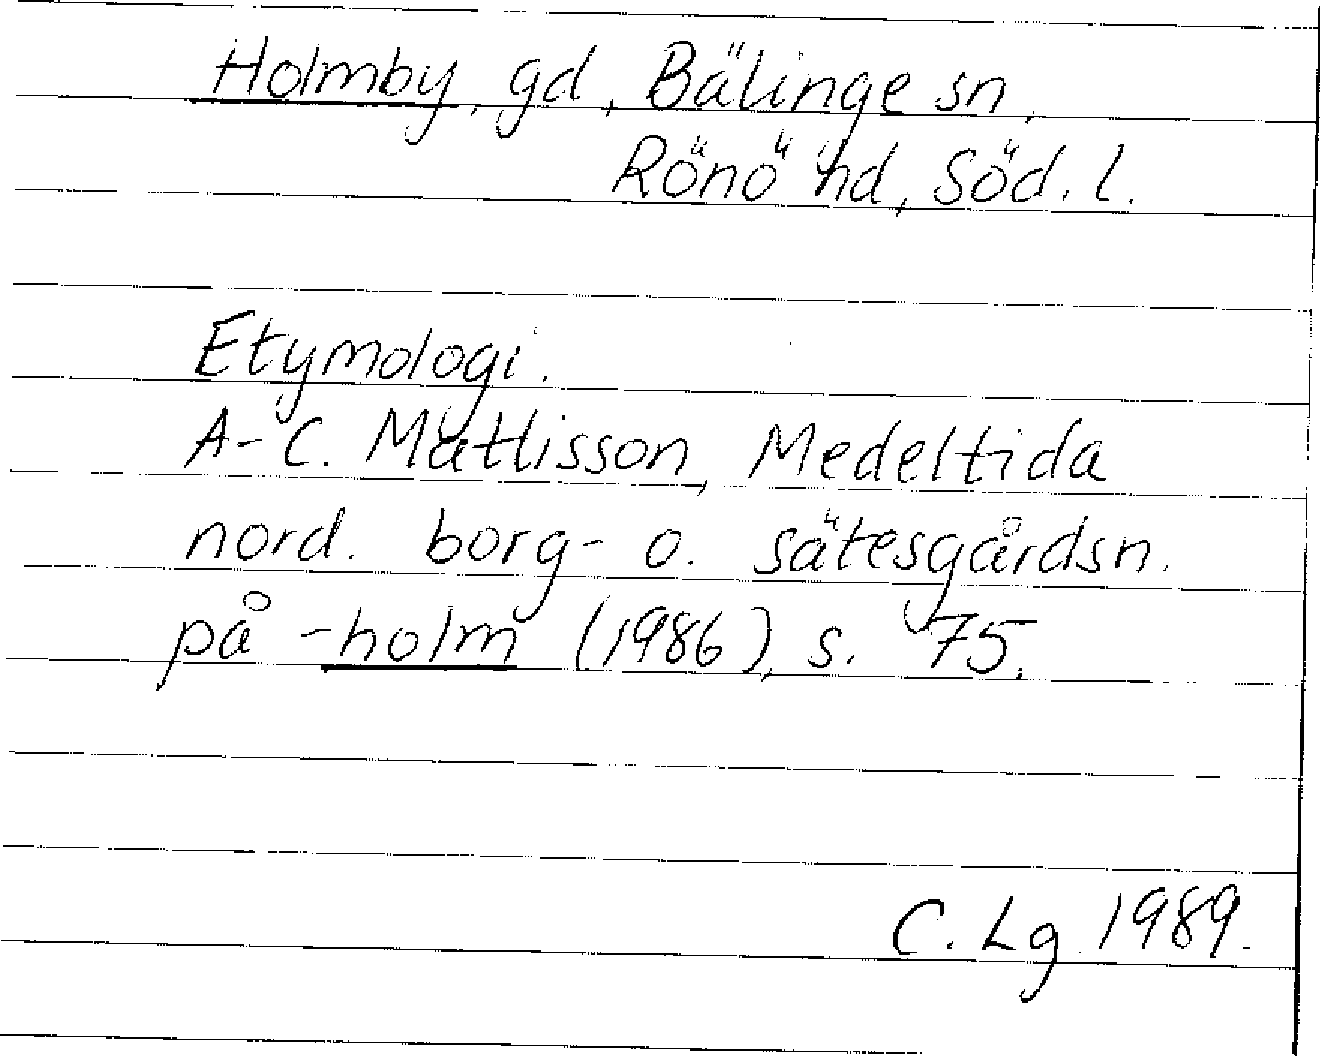 Holmby, gd, Bälinge sn,
Rönö hd, Söd. l.
Etymologi.
A-C. Mattisson, Medeltida
nord. borg- o. sätesgårdsn.
på -holm (1986), s. 75.
C. Lg 1989.